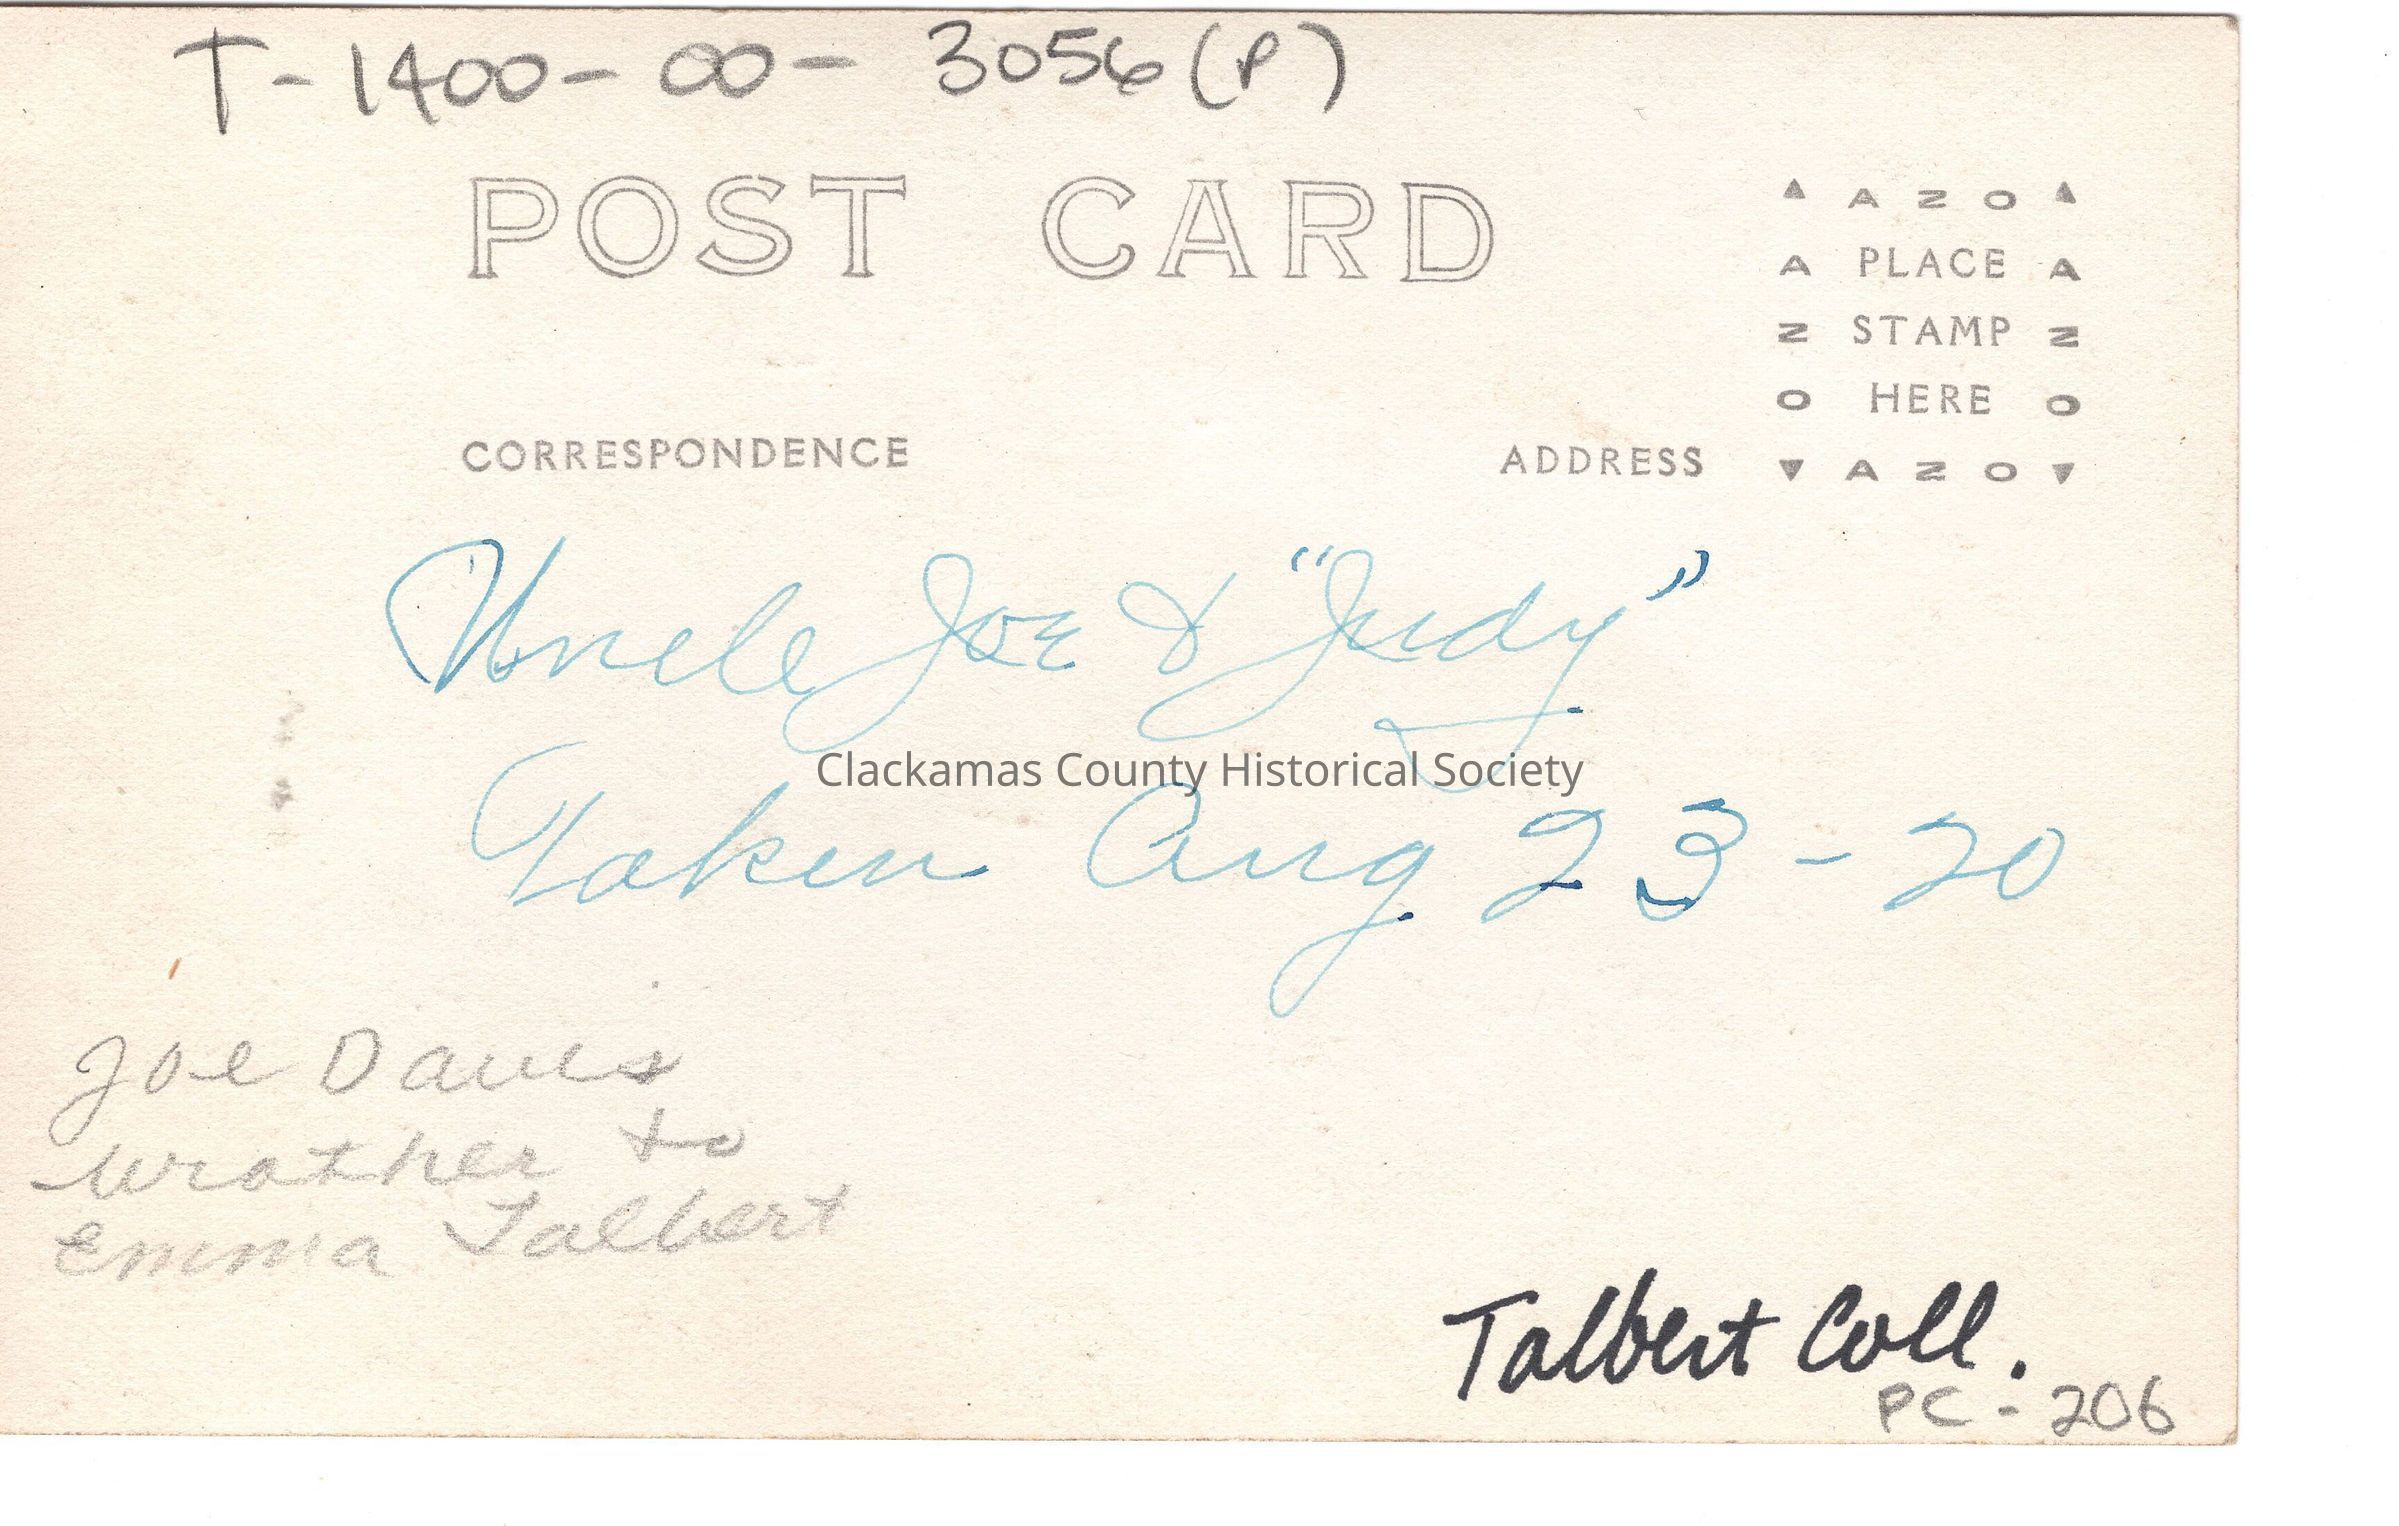 T-1400-00-3056(P)
POST CARD
▲ A Z O ▲
A PLACE A
Z STAMP Z
O HERE O
▼ A Z O ▼
CORRESPONDENCE
ADDRESS
Uncle Joe & "Judy"
Clackamas County Historical Society
Taken Aug 23-20
Joe Davis
wrather to
Emma Talbert
Talbert Coll.
PC-206